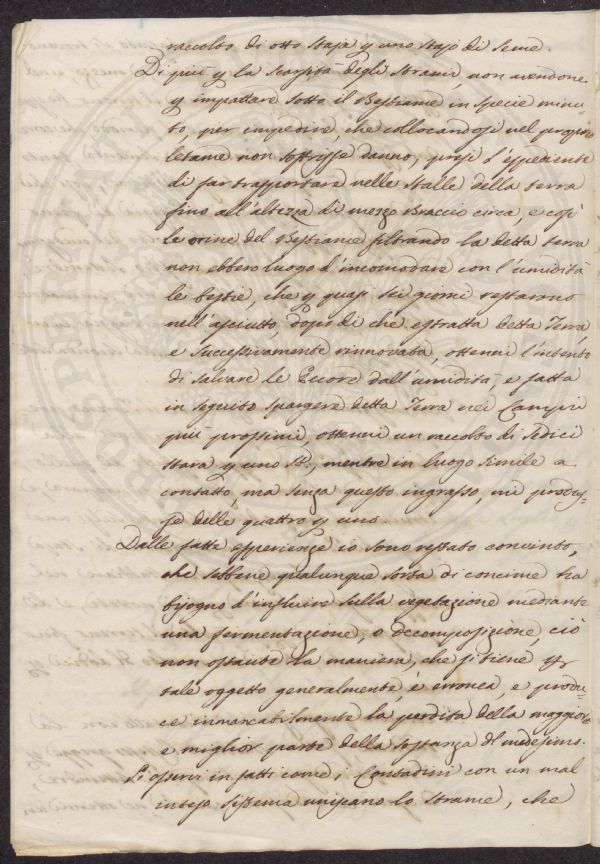 raccolto di otto staja p uno stajo di seme.
Di più p la scarsità degli strami, non avendone
p impattare sotto il Bestiame in specie minu-
to, per impedire, che collocandosi nel proprio
letame non soffrisse danno, presi l'espediente
di far trapportare nelle stalle della terra
fino all'altezza di mezzo Braccio circa, e così
le orine del Bestiame filtrando la detta terra
non ebbero luogo d'incomodare con l'umidità
le bestie, che p quasi sei giorni restarono
nell'asciutto, dopo di che estratta detta Terra,
e successivamente rinnovata, ottenni l'intento
di salvare le Pecore dall'umidità, e fatta
in seguito spargere detta Terra nei Campi
più prossimi, ottenni un raccolto di sedici
stara p uno St:, mentre in luogo simile a
contatto, ma senza questo ingrasso, mi produs-
se delle quattro p uno.
Dalle fatte esperienze io sono restato convinto,
che sebbene qualunque sorta di concime ha
bisogno d'influire sulla vegetazione mediante
una fermentazione, o decomposizione, ciò
non ostante la maniera, che si tiene p
tale oggetto generalmente è erronea, e produ-
ce immancabilmente la perdita della maggiore
e miglior parte della sostanza del medesimo.
Si osservi in fatti come i Contadini con un mal
inteso sistema uniscano lo strame, che